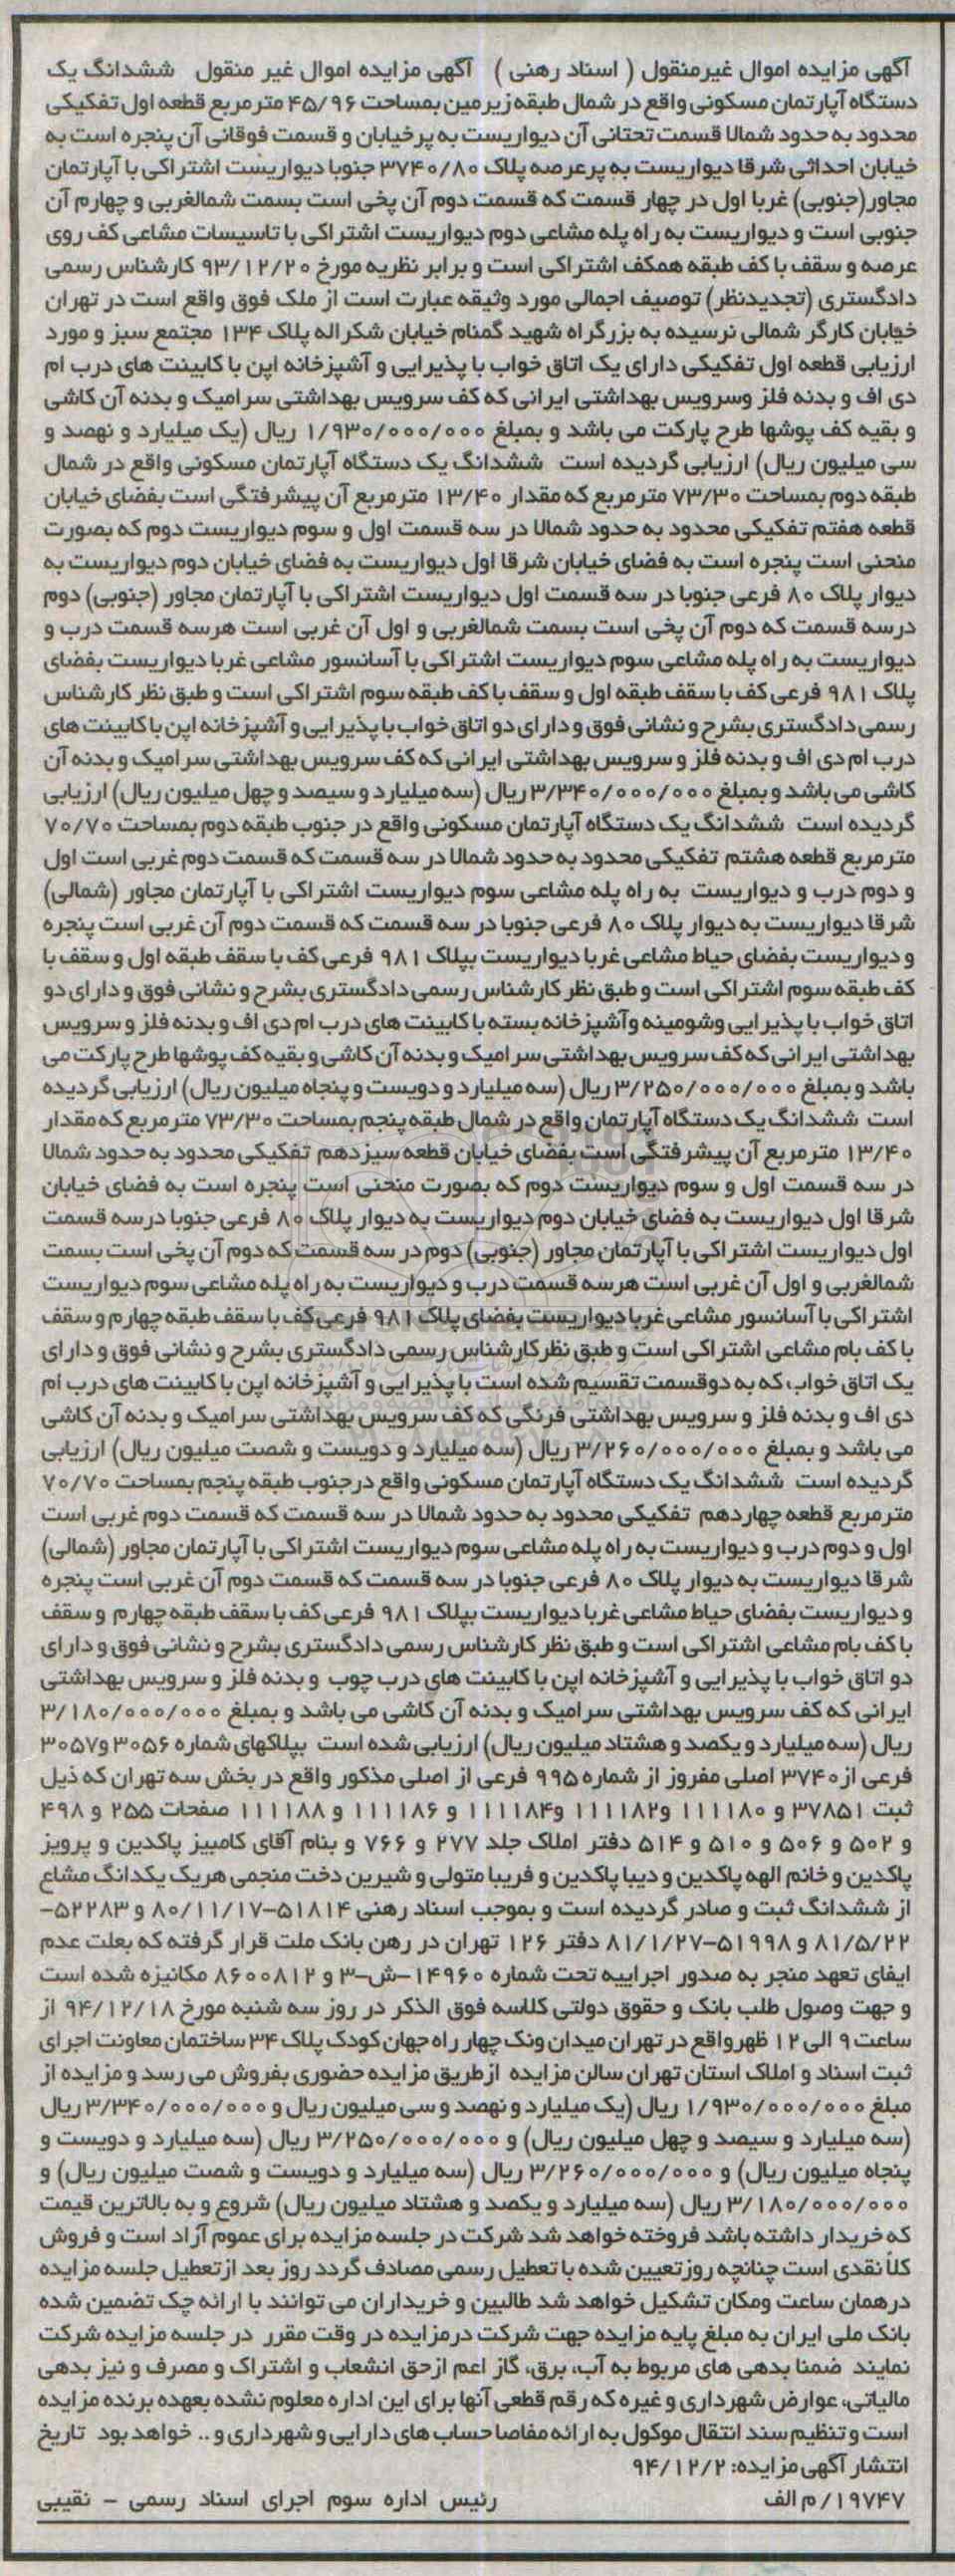 آگهی مزایده اموال غیرمنقول ( اسناد رهنی ) آگهی مزایده اموال غیر منقول ششدانگ یک
دستگاه آپارتمان مسکونی واقع در شمال طبقه زیرمین بمساحت ۴۵/۹۶ متر مربع قطعه اول تفکیکی
محدود به حدود شمالا قسمت تحتانی آن دیواریست به پر خیابان و قسمت فوقانی آن پنجره است به
خیابان احداثی شرقا دیواریست به پر عرصه پلاک ۳۷۴۰/۸۰ جنوبا دیواریست اشتراکی با آپارتمان
مجاور(جنوبی) غربا اول در چهار قسمت که قسمت دوم آن پخی است بسمت شمالغربی و چهارم آن
جنوبی است و دیواریست به راه پله مشاعی دوم دیواریست اشتراکی با تاسیسات مشاعی کف روی
عرصه و سقف با کف طبقه همکف اشتراکی است و برابر نظریه مورخ ۹۳/۱۲/۲۰ کارشناس رسمی
دادگستری (تجدیدنظر) توصیف اجمالی مورد وثیقه عبارت است از ملک فوق واقع است در تهران
خیابان کارگر شمالی نرسیده به بزرگراه شهید گمنام خیابان شکراله پلاک ۱۳۴ مجتمع سبز و مورد
ارزیابی قطعه اول تفکیکی دارای یک اتاق خواب با پذیرایی و آشپزخانه اپن با کابینت های درب ام
دی اف و بدنه فلز وسرویس بهداشتی ایرانی که کف سرویس بهداشتی سرامیک و بدنه آن کاشی
و بقیه کف پوشها طرح پارکت می باشد و بمبلغ ۱/۹۳۰/۰۰۰/۰۰۰ ریال (یک میلیارد و نهصد و
سی میلیون ریال) ارزیابی گردیده است ششدانگ یک دستگاه آپارتمان مسکونی واقع در شمال
طبقه دوم بمساحت ۷۳/۳۰ مترمربع که مقدار ۱۳/۴۰ مترمربع آن پیشرفتگی است بفضای خیابان
قطعه هفتم تفکیکی محدود به حدود شمالا در سه قسمت اول و سوم دیواریست دوم که بصورت
منحنی است پنجره است به فضای خیابان شرقا اول دیواریست به فضای خیابان دوم دیواریست به
دیوار پلاک ۸۰ فرعی جنوبا در سه قسمت اول دیواریست اشتراکی با آپارتمان مجاور (جنوبی) دوم
درسه قسمت که دوم آن پخی است بسمت شمالغربی و اول آن غربی است هرسه قسمت درب و
دیواریست به راه پله مشاعی سوم دیواریست اشتراکی با آسانسور مشاعی غربا دیواریست بفضای
پلاک ۹۸۱ فرعی کف با سقف طبقه اول و سقف با کف طبقه سوم اشتراکی است و طبق نظر کارشناس
رسمی دادگستری بشرح و نشانی فوق و دارای دو اتاق خواب با پذیرایی و آشپزخانه اپن با کابینت های
درب ام دی اف و بدنه فلز و سرویس بهداشتی ایرانی که کف سرویس بهداشتی سرامیک و بدنه آن
کاشی می باشد و بمبلغ ۳/۳۴۰/۰۰۰/۰۰۰ ریال (سه میلیارد و سیصد و چهل میلیون ریال) ارزیابی
گردیده است ششدانگ یک دستگاه آپارتمان مسکونی واقع در جنوب طبقه دوم بمساحت ۷۰/۷۰
مترمربع قطعه هشتم تفکیکی محدود به حدود شمالا در سه قسمت که قسمت دوم غربی است اول
و دوم درب و دیواریست به راه پله مشاعی سوم دیواریست اشتراکی با آپارتمان مجاور (شمالی)
شرقا دیواریست به دیوار پلاک ۸۰ فرعی جنوبا در سه قسمت که قسمت دوم آن غربی است پنجره
و دیواریست بفضای حیاط مشاعی غربا دیواریست بپلاک ۹۸۱ فرعی کف با سقف طبقه اول و سقف با
کف طبقه سوم اشتراکی است و طبق نظر کارشناس رسمی دادگستری بشرح و نشانی فوق و دارای دو
اتاق خواب با پذیرایی وشومینه وآشپزخانه بسته با کابینت های درب ام دی اف و بدنه فلز و سرویس
بهداشتی ایرانی که کف سرویس بهداشتی سرامیک و بدنه آن کاشی و بقیه کف پوشها طرح پارکت می
باشد و بمبلغ ۳/۲۵۰/۰۰۰/۰۰۰ ریال (سه میلیارد و دویست و پنجاه میلیون ریال) ارزیابی گردیده
است ششدانگ یک دستگاه آپارتمان واقع در شمال طبقه پنجم بمساحت ۷۳/۳۰ متر مربع که مقدار
۱۳/۴۰ مترمربع آن پیشرفتگی است بفضای خیابان قطعه سیزدهم تفکیکی محدود به حدود شمالا
در سه قسمت اول و سوم دیواریست دوم که بصورت منحنی است پنجره است به فضای خیابان
شرقا اول دیواریست به فضای خیابان دوم دیواریست به دیوار پلاک ۸۰ فرعی جنوبا درسه قسمت
اول دیواریست اشتراکی با آپارتمان مجاور (جنوبی) دوم در سه قسمت که دوم آن پخی است بسمت
شمالغربی و اول آن غربی است هرسه قسمت درب و دیواریست به راه پله مشاعی سوم دیواریست
اشتراکی با آسانسور مشاعی غربا دیواریست بفضای پلاک ۹۸۱ فرعی کف با سقف طبقه چهارم و سقف
با کف بام مشاعی اشتراکی است و طبق نظر کارشناس رسمی دادگستری بشرح و نشانی فوق و دارای
یک اتاق خواب که به دوقسمت تقسیم شده است با پذیرایی و آشپزخانه اپن با کابینت های درب ام
دی اف و بدنه فلز و سرویس بهداشتی فرنگی که کف سرویس بهداشتی سرامیک و بدنه آن کاشی
می باشد و بمبلغ ۳/۲۶۰/۰۰۰/۰۰۰ ریال (سه میلیارد و دویست و شصت میلیون ریال) ارزیابی
گردیده است ششدانگ یک دستگاه آپارتمان مسکونی واقع درجنوب طبقه پنجم بمساحت ۷۰/۷۰
مترمربع قطعه چهاردهم تفکیکی محدود به حدود شمالا در سه قسمت که قسمت دوم غربی است
اول و دوم درب و دیواریست به راه پله مشاعی سوم دیواریست اشتراکی با آپارتمان مجاور (شمالی)
شرقا دیواریست به دیوار پلاک ۸۰ فرعی جنوبا در سه قسمت که قسمت دوم آن غربی است پنجره
و دیواریست بفضای حیاط مشاعی غربا دیواریست بپلاک ۹۸۱ فرعی کف با سقف طبقه چهارم و سقف
با کف بام مشاعی اشتراکی است و طبق نظر کارشناس رسمی دادگستری بشرح و نشانی فوق و دارای
دو اتاق خواب با پذیرایی و آشپزخانه اپن با کابینت های درب چوب و بدنه فلز و سرویس بهداشتی
ایرانی که کف سرویس بهداشتی سرامیک و بدنه آن کاشی می باشد و بمبلغ ۳/۱۸۰/۰۰۰/۰۰۰
ریال (سه میلیارد و یکصد و هشتاد میلیون ریال) ارزیابی شده است بپلاکهای شماره ۳۰۵۶ و۳۰۵۷
فرعی از ۳۷۴۰ اصلی مفروز از شماره ۹۹۵ فرعی از اصلی مذکور واقع در بخش سه تهران که ذیل
ثبت ۳۷۸۵۱ و ۱۱۱۱۸۰ و۱۱۱۱۸۲ و۱۱۱۱۸۴ و ۱۱۱۱۸۶ و ۱۱۱۱۸۸ صفحات ۲۵۵ و ۴۹۸
و ۵۰۲ و ۵۰۶ و ۵۱۰ و ۵۱۴ دفتر املاک جلد ۲۷۷ و ۷۶۶ و بنام آقای کامبیز پاکدین و پرویز
پاکدین و خانم الهه پاکدین و دیبا پاکدین و فریبا متولی و شیرین دخت منجمی هریک یکدانگ مشاع
از ششدانگ ثبت و صادر گردیده است و بموجب اسناد رهنی ۵۱۸۱۴-۸۰/۱۱/۱۷ و ۵۲۲۸۳-
۸۱/۵/۲۲ و ۵۱۹۹۸-۸۱/۱/۲۷ دفتر ۱۲۶ تهران در رهن بانک ملت قرار گرفته که بعلت عدم
ایفای تعهد منجر به صدور اجراییه تحت شماره ۱۴۹۶۰-ش-۳ و ۸۶۰۰۸۱۲ مکانیزه شده است
و جهت وصول طلب بانک و حقوق دولتی کلاسه فوق الذکر در روز سه شنبه مورخ ۹۴/۱۲/۱۸ از
ساعت ۹ الی ۱۲ ظهر واقع در تهران میدان ونک چهار راه جهان کودک پلاک ۳۴ ساختمان معاونت اجرای
ثبت اسناد و املاک استان تهران سالن مزایده ازطریق مزایده حضوری بفروش می رسد و مزایده از
مبلغ ۱/۹۳۰/۰۰۰/۰۰۰ ریال (یک میلیارد و نهصد و سی میلیون ریال و ۳/۳۴۰/۰۰۰/۰۰۰ ریال
(سه میلیارد و سیصد و چهل میلیون ریال) و ۳/۲۵۰/۰۰۰/۰۰۰ ریال (سه میلیارد و دویست و
پنجاه میلیون ریال) و ۳/۲۶۰/۰۰۰/۰۰۰ ریال (سه میلیارد و دویست و شصت میلیون ریال) و
۳/۱۸۰/۰۰۰/۰۰۰ ریال (سه میلیارد و یکصد و هشتاد میلیون ریال) شروع و به بالاترین قیمت
که خریدار داشته باشد فروخته خواهد شد شرکت در جلسه مزایده برای عموم آزاد است و فروش
کلاً نقدی است چنانچه روز تعیین شده با تعطیل رسمی مصادف گردد روز بعد از تعطیل جلسه مزایده
درهمان ساعت ومکان تشکیل خواهد شد طالبین و خریداران می توانند با ارائه چک تضمین شده
بانک ملی ایران به مبلغ پایه مزایده جهت شرکت درمزایده در وقت مقرر در جلسه مزایده شرکت
نمایند ضمنا بدهی های مربوط به آب، برق، گاز اعم ازحق انشعاب و اشتراک و مصرف و نیز بدهی
مالیاتی، عوارض شهرداری و غیره که رقم قطعی آنها برای این اداره معلوم نشده بعهده برنده مزایده
است و تنظیم سند انتقال موکول به ارائه مفاصا حساب های دارایی و شهرداری و .. خواهد بود تاریخ
انتشار آگهی مزایده: ۹۴/۱۲/۲
۱۹۷۴۷/م الف رئیس اداره سوم اجرای اسناد رسمی - نقیبی